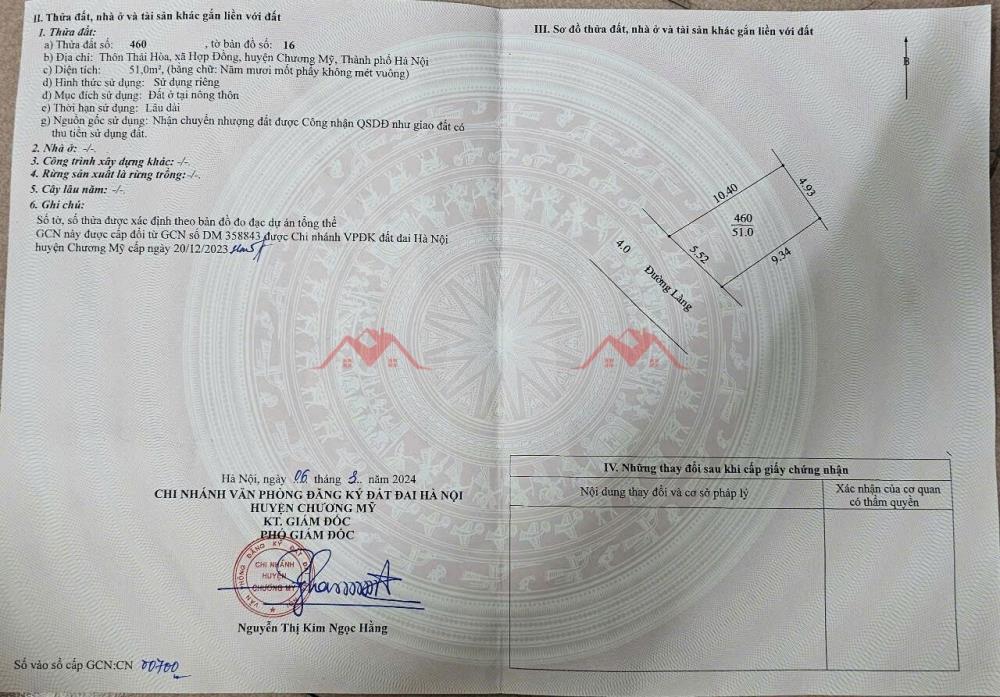 II. Thửa đất, nhà ở và tài sản khác gắn liền với đất
1. Thửa đất:
a) Thửa đất số: 460 , tờ bản đồ số: 16
b) Địa chỉ: Thôn Thái Hòa, xã Hợp Đồng, huyện Chương Mỹ, Thành phố Hà Nội
c) Diện tích: 51,0m², (bằng chữ: Năm mươi mốt phẩy không mét vuông)
d) Hình thức sử dụng: Sử dụng riêng
đ) Mục đích sử dụng: Đất ở tại nông thôn
e) Thời hạn sử dụng: Lâu dài
g) Nguồn gốc sử dụng: Nhận chuyển nhượng đất được Công nhận QSDĐ như giao đất có
thu tiền sử dụng đất.
2. Nhà ở: -/-.
3. Công trình xây dựng khác: -/-.
4. Rừng sản xuất là rừng trồng: -/-.
5. Cây lâu năm: -/-.
6. Ghi chú:
Số tờ, số thửa được xác định theo bản đồ đo đạc dự án tổng thể
GCN này được cấp đổi từ GCN số DM 358843 được Chi nhánh VPĐK đất đai Hà Nội
huyện Chương Mỹ cấp ngày 20/12/2023
Hà Nội, ngày 06 tháng 8.. năm 2024
CHI NHÁNH VĂN PHÒNG ĐĂNG KÝ ĐẤT ĐAI HÀ NỘI
HUYỆN CHƯƠNG MỸ
KT. GIÁM ĐỐC
PHÓ GIÁM ĐỐC
VĂN PHÒNG ĐĂNG KÝ ĐẤT
CHI NHÁNH
HUYỆN
CHƯƠNG MỸ
Nguyễn Thị Kim Ngọc Hằng
Số vào sổ cấp GCN:CN 00700
III. Sơ đồ thửa đất, nhà ở và tài sản khác gắn liền với đất
B
10.40
4.93
460
51.0
5.52
9.34
4.0
Đường Làng
IV. Những thay đổi sau khi cấp giấy chứng nhận
Nội dung thay đổi và cơ sở pháp lý
Xác nhận của cơ quan
có thẩm quyền